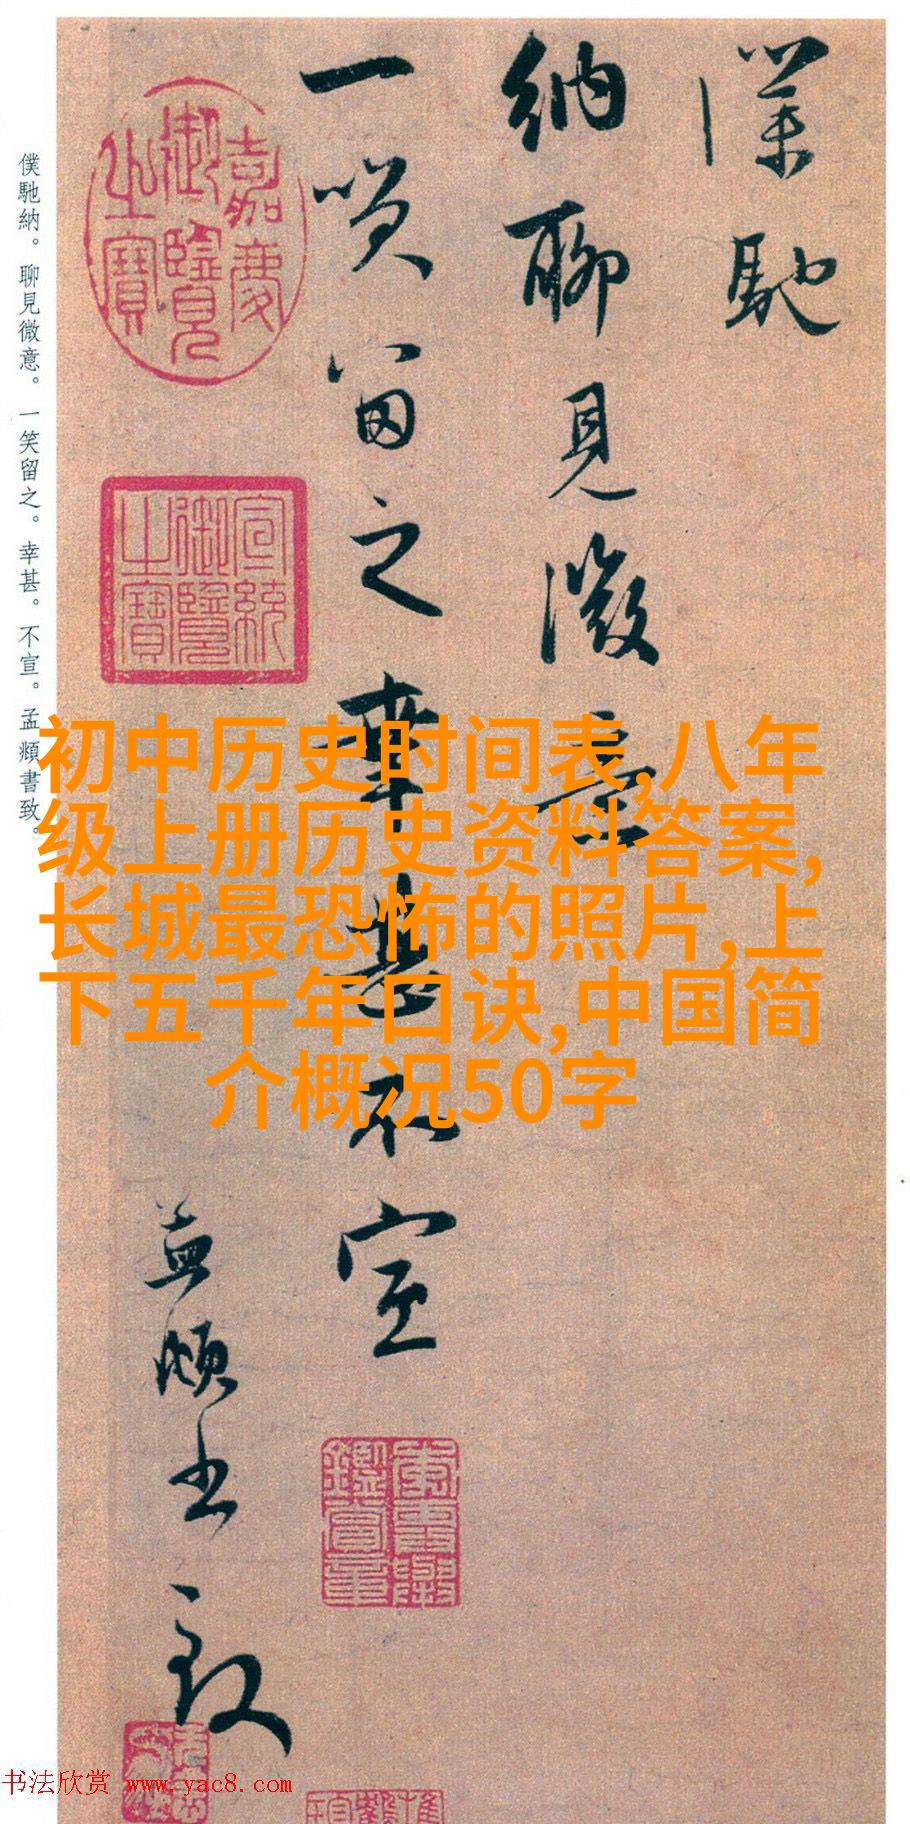 僕馳
納聊見微意
一笑留之幸甚不宣
孟頫書致
嘉慶御覽之寶
宣統御覽之寶
僕馳納。聊見微意。一笑留之。幸甚。不宣。孟頫書致。
初中历史时间表,八年
级上册历史资料答案,
长城最恐怖的照片,上
下五千年口诀,中国简
介概况50字
书法欣赏 www.yac8.com